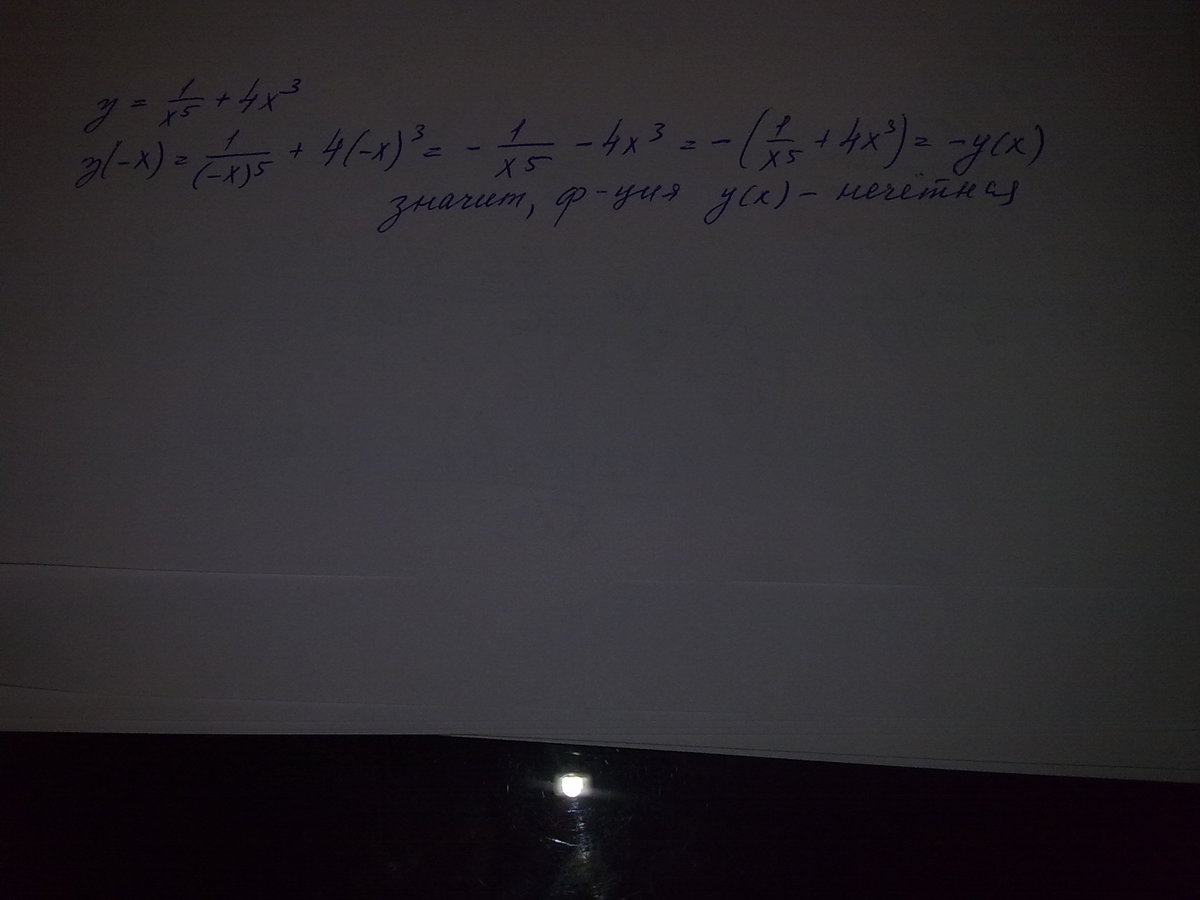 y = 1/x⁵ + 4x³
y(-x) = 1/(-x)⁵ + 4(-x)³ = - 1/x⁵ - 4x³ = -(1/x⁵ + 4x³) = -y(x)
значит, ф-ция y(x) - нечётная